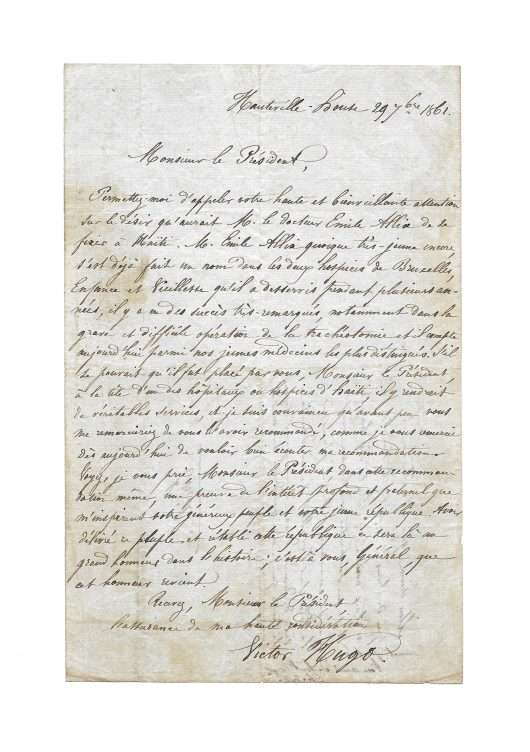 Hauteville-House 29 7bre 1861.
Monsieur le Président,
Permettez-moi d'appeler votre haute et bienveillante attention
sur le désir qu'aurait M. le docteur Emile Allix de se
fixer à Haïti. M. Emile Allix quoique très-jeune encore
s'est déjà fait un nom dans les deux hospices de Bruxelles,
Enfance et Vieillesse qu'il a desservis pendant plusieurs an-
nées, il y a eu des succès très-remarqués, notamment dans la
grave et difficile opération de la trachéotomie et il compte
aujourd'hui parmi nos jeunes médecins les plus distingués. S'il
se pouvait qu'il fût placé par vous, Monsieur le Président
à la tête d'un des hôpitaux ou hospices d'Haïti, il y rendrait
de véritables services, et je suis convaincu qu'avant peu vous
me remercieriez de vous l'avoir recommandé, comme je vous remercie
dès aujourd'hui de vouloir bien écouter ma recommandation.
Voyez, je vous prie, Monsieur le Président dans cette recomman-
dation même, une preuve de l'intérêt profond et fraternel que
m'inspirent votre généreux peuple et votre jeune république. Avoir
délivré ce peuple et rétabli cette république ce sera là un
grand honneur dans l'histoire; c'est à vous, Général que
cet honneur revient.
Recevez, Monsieur le Président
l'assurance de ma haute considération
Victor Hugo.